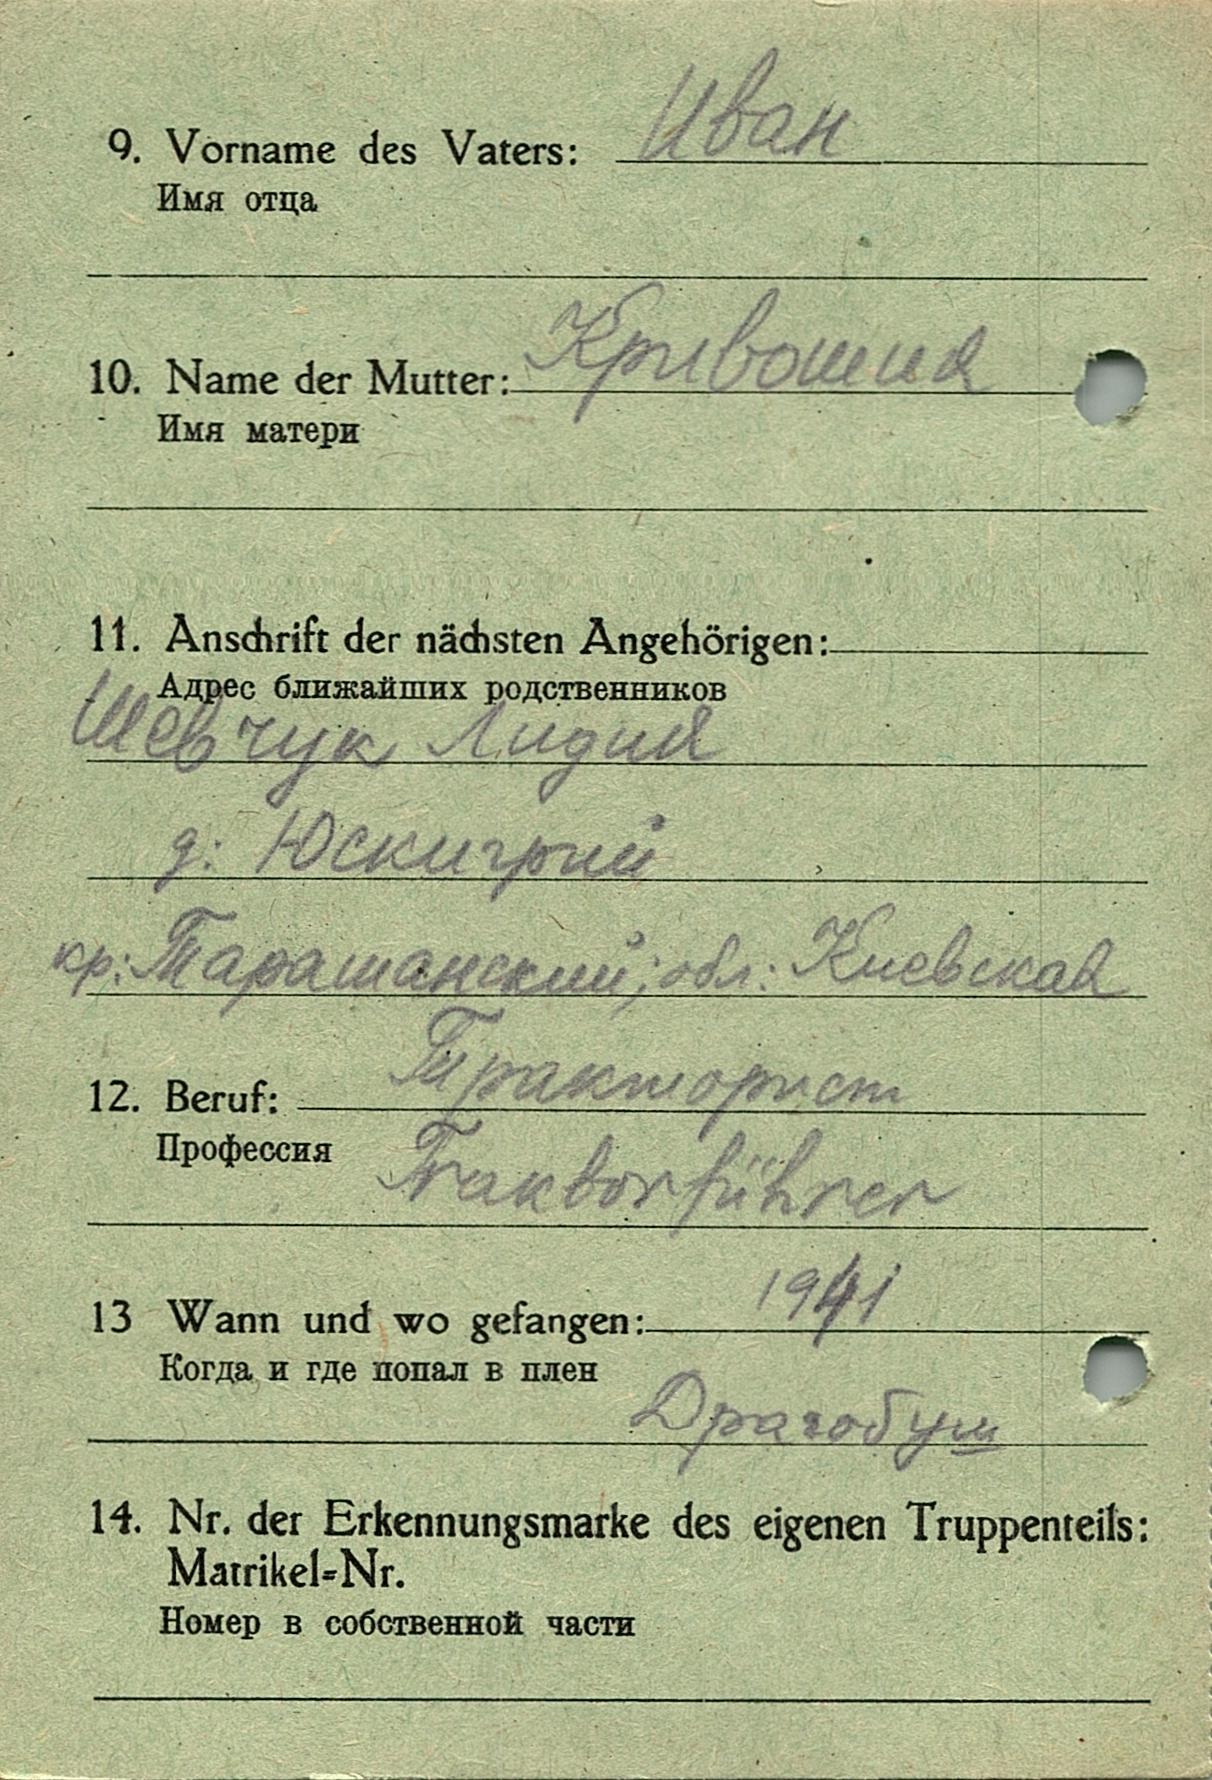 9. Vorname des Vaters: Иван
Имя отца
10. Name der Mutter: Кривошия
Имя матери
11. Anschrift der nächsten Angehörigen:
Адрес ближайших родственников
Шевчук Лидия
д: Юскигрий
кр: Тарашанский; обл: Киевская
12. Beruf: Тракторист
Профессия
Traktorführer
13 Wann und wo gefangen: 1941
Когда и где попал в плен
Драгобуш
14. Nr. der Erkennungsmarke des eigenen Truppenteils:
Matrikel-Nr.
Номер в собственной части